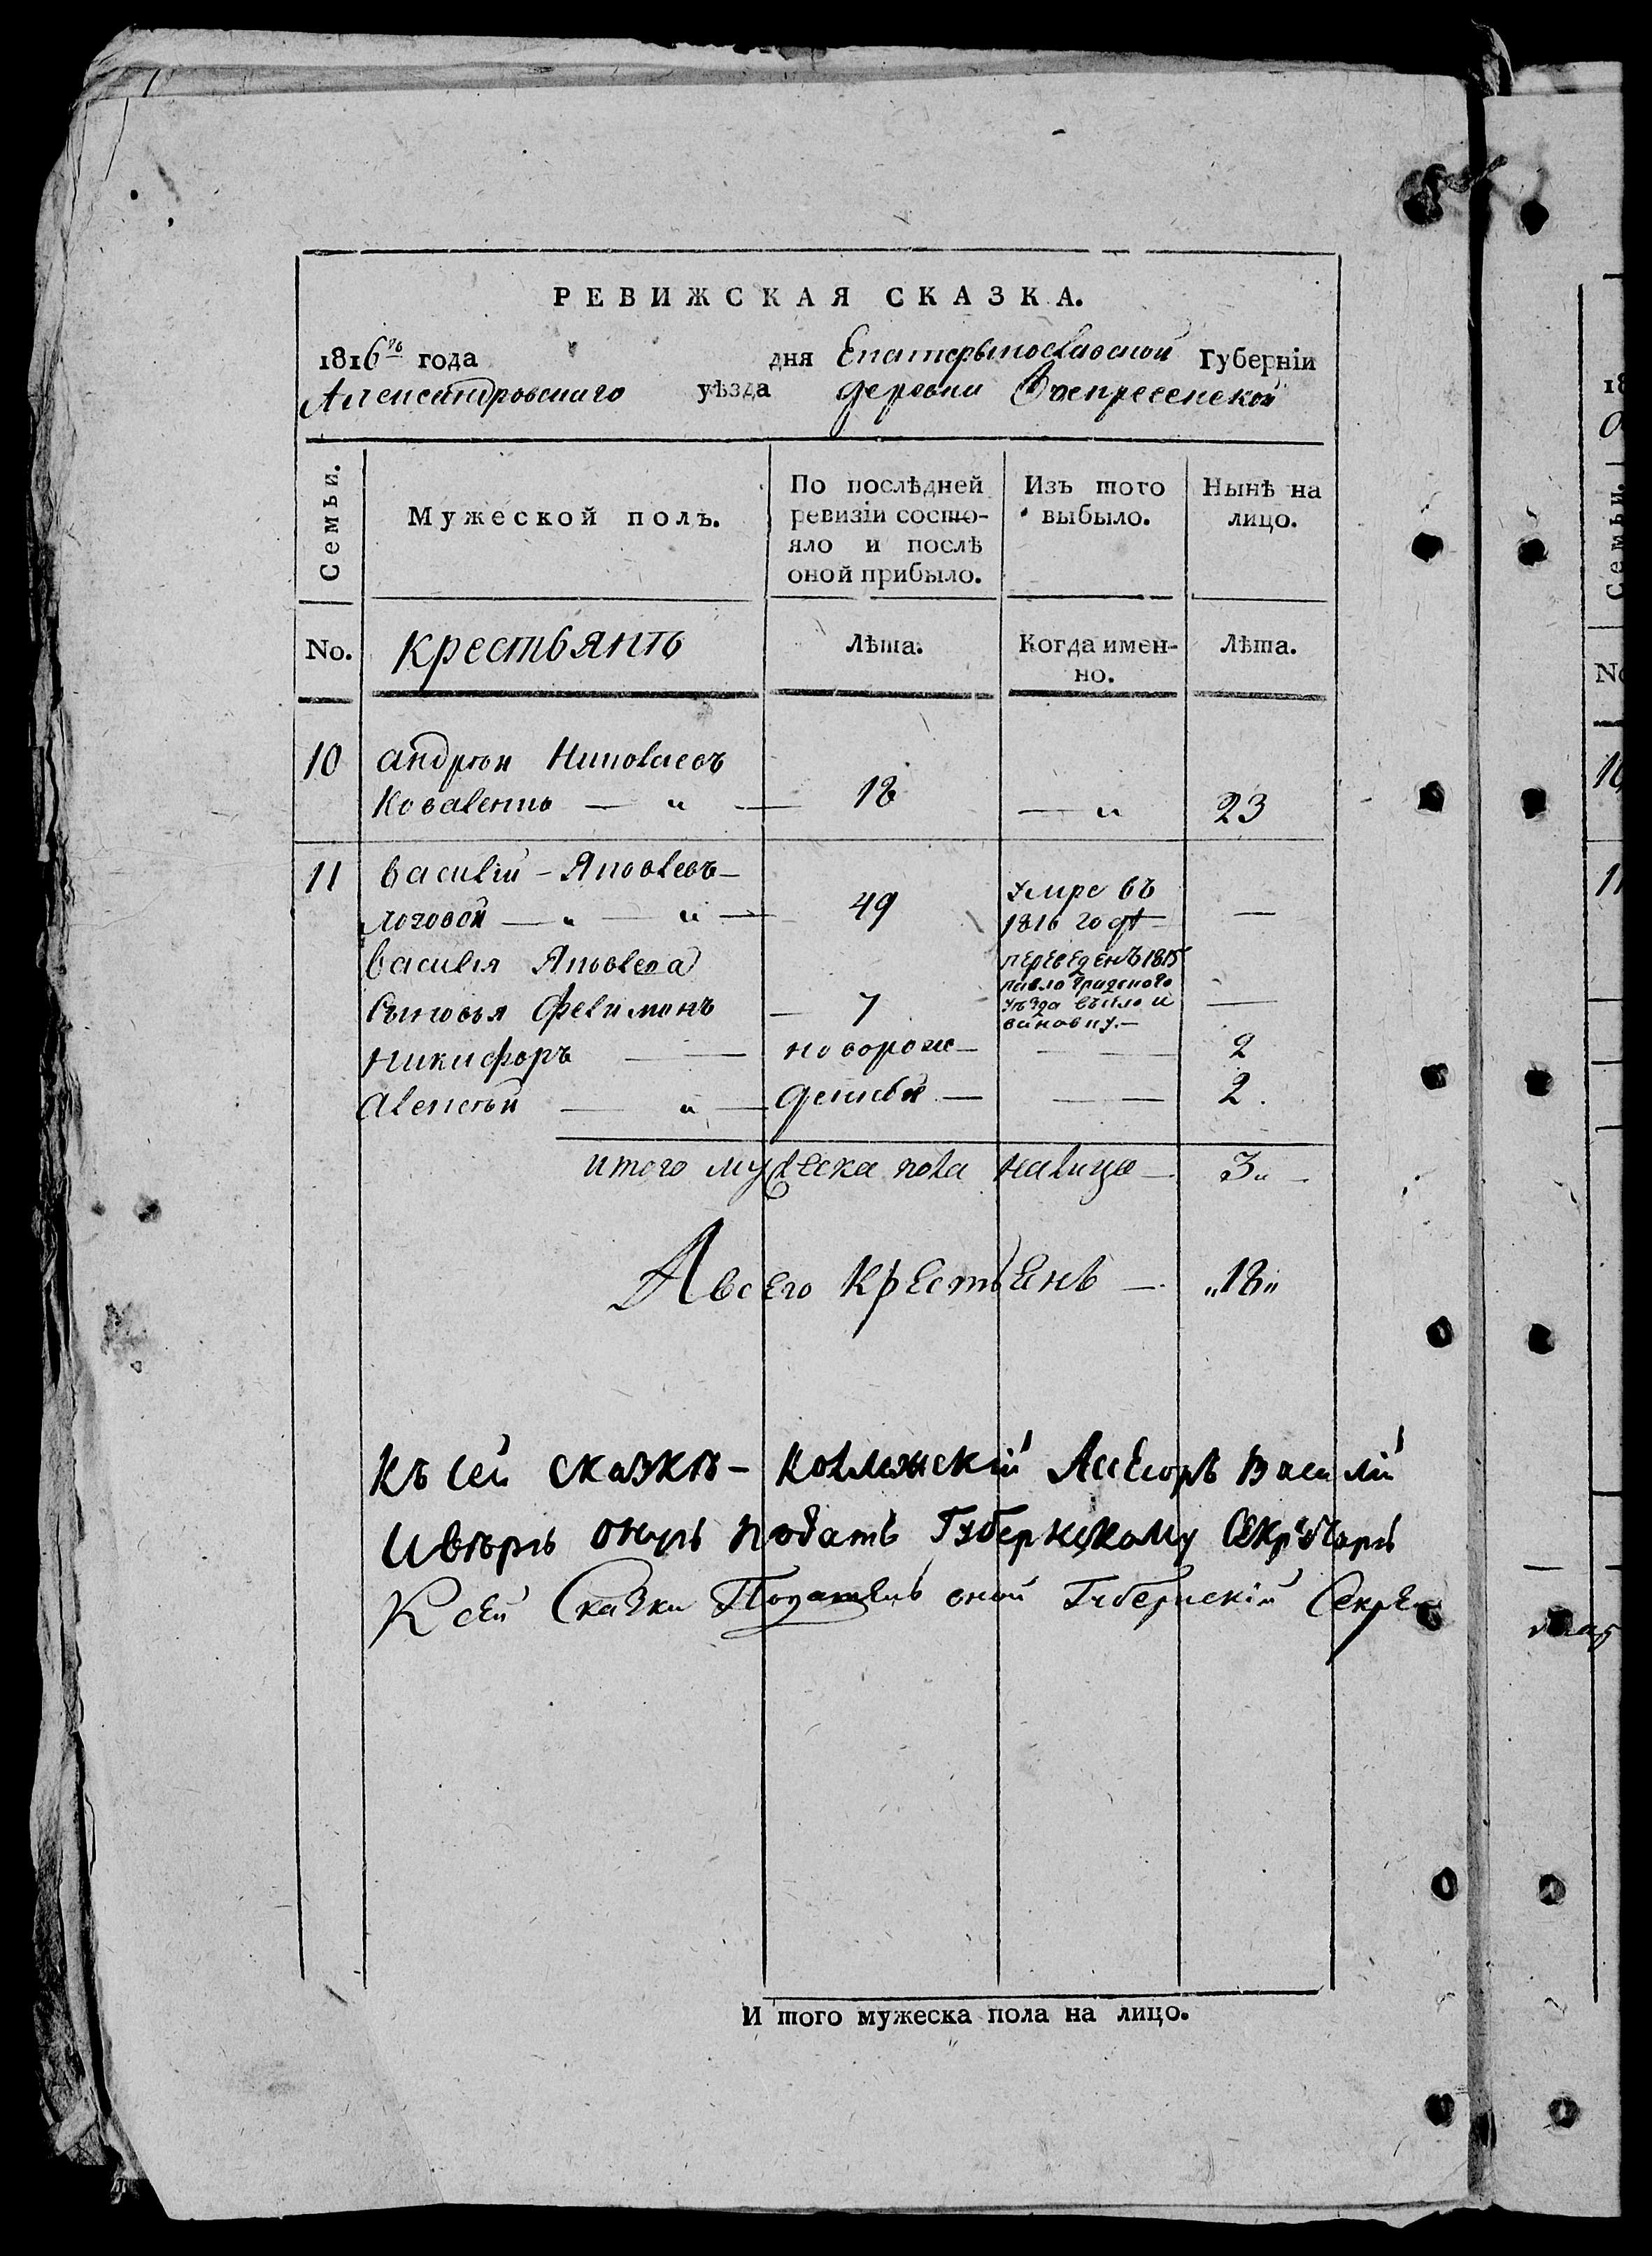 РЕВИЖСКАЯ СКАЗКА.
1816го года дня Екатеринославской Губерніи
Александровскаго уѣзда деревни Воскресенской
Семьи. Мужеской полъ. По послѣдней ревизіи состояло и послѣ оной прибыло. Изъ того выбыло. Нынѣ на лицо.
No. крестьянъ Лѣта. Когда именно. Лѣта.
10 андрѣй Николаевъ
Коваленко — „ — 18 — „ 23
11 василій – Яковлевъ – 49 умре въ
логовой — „ — „ — 1816 годѣ —
василія Яковлева переведенъ 1815
Сыновья Филимонъ — 7 павлоградскаго
уѣзда въ село и
никифоръ — — новорож— — — 2
Алексѣй — „ — денные — — — 2.
итого мужеска пола налицо — 3„ –
А всего крестьянъ — „18„
Къ сей сказкѣ – коллежскій Ассесоръ Василій
оную подать Губернскому Секретарю
К сей Сказки Податель оной Губернскій Секре
И того мужеска пола на лицо.
18
Семьи.
No
10
11